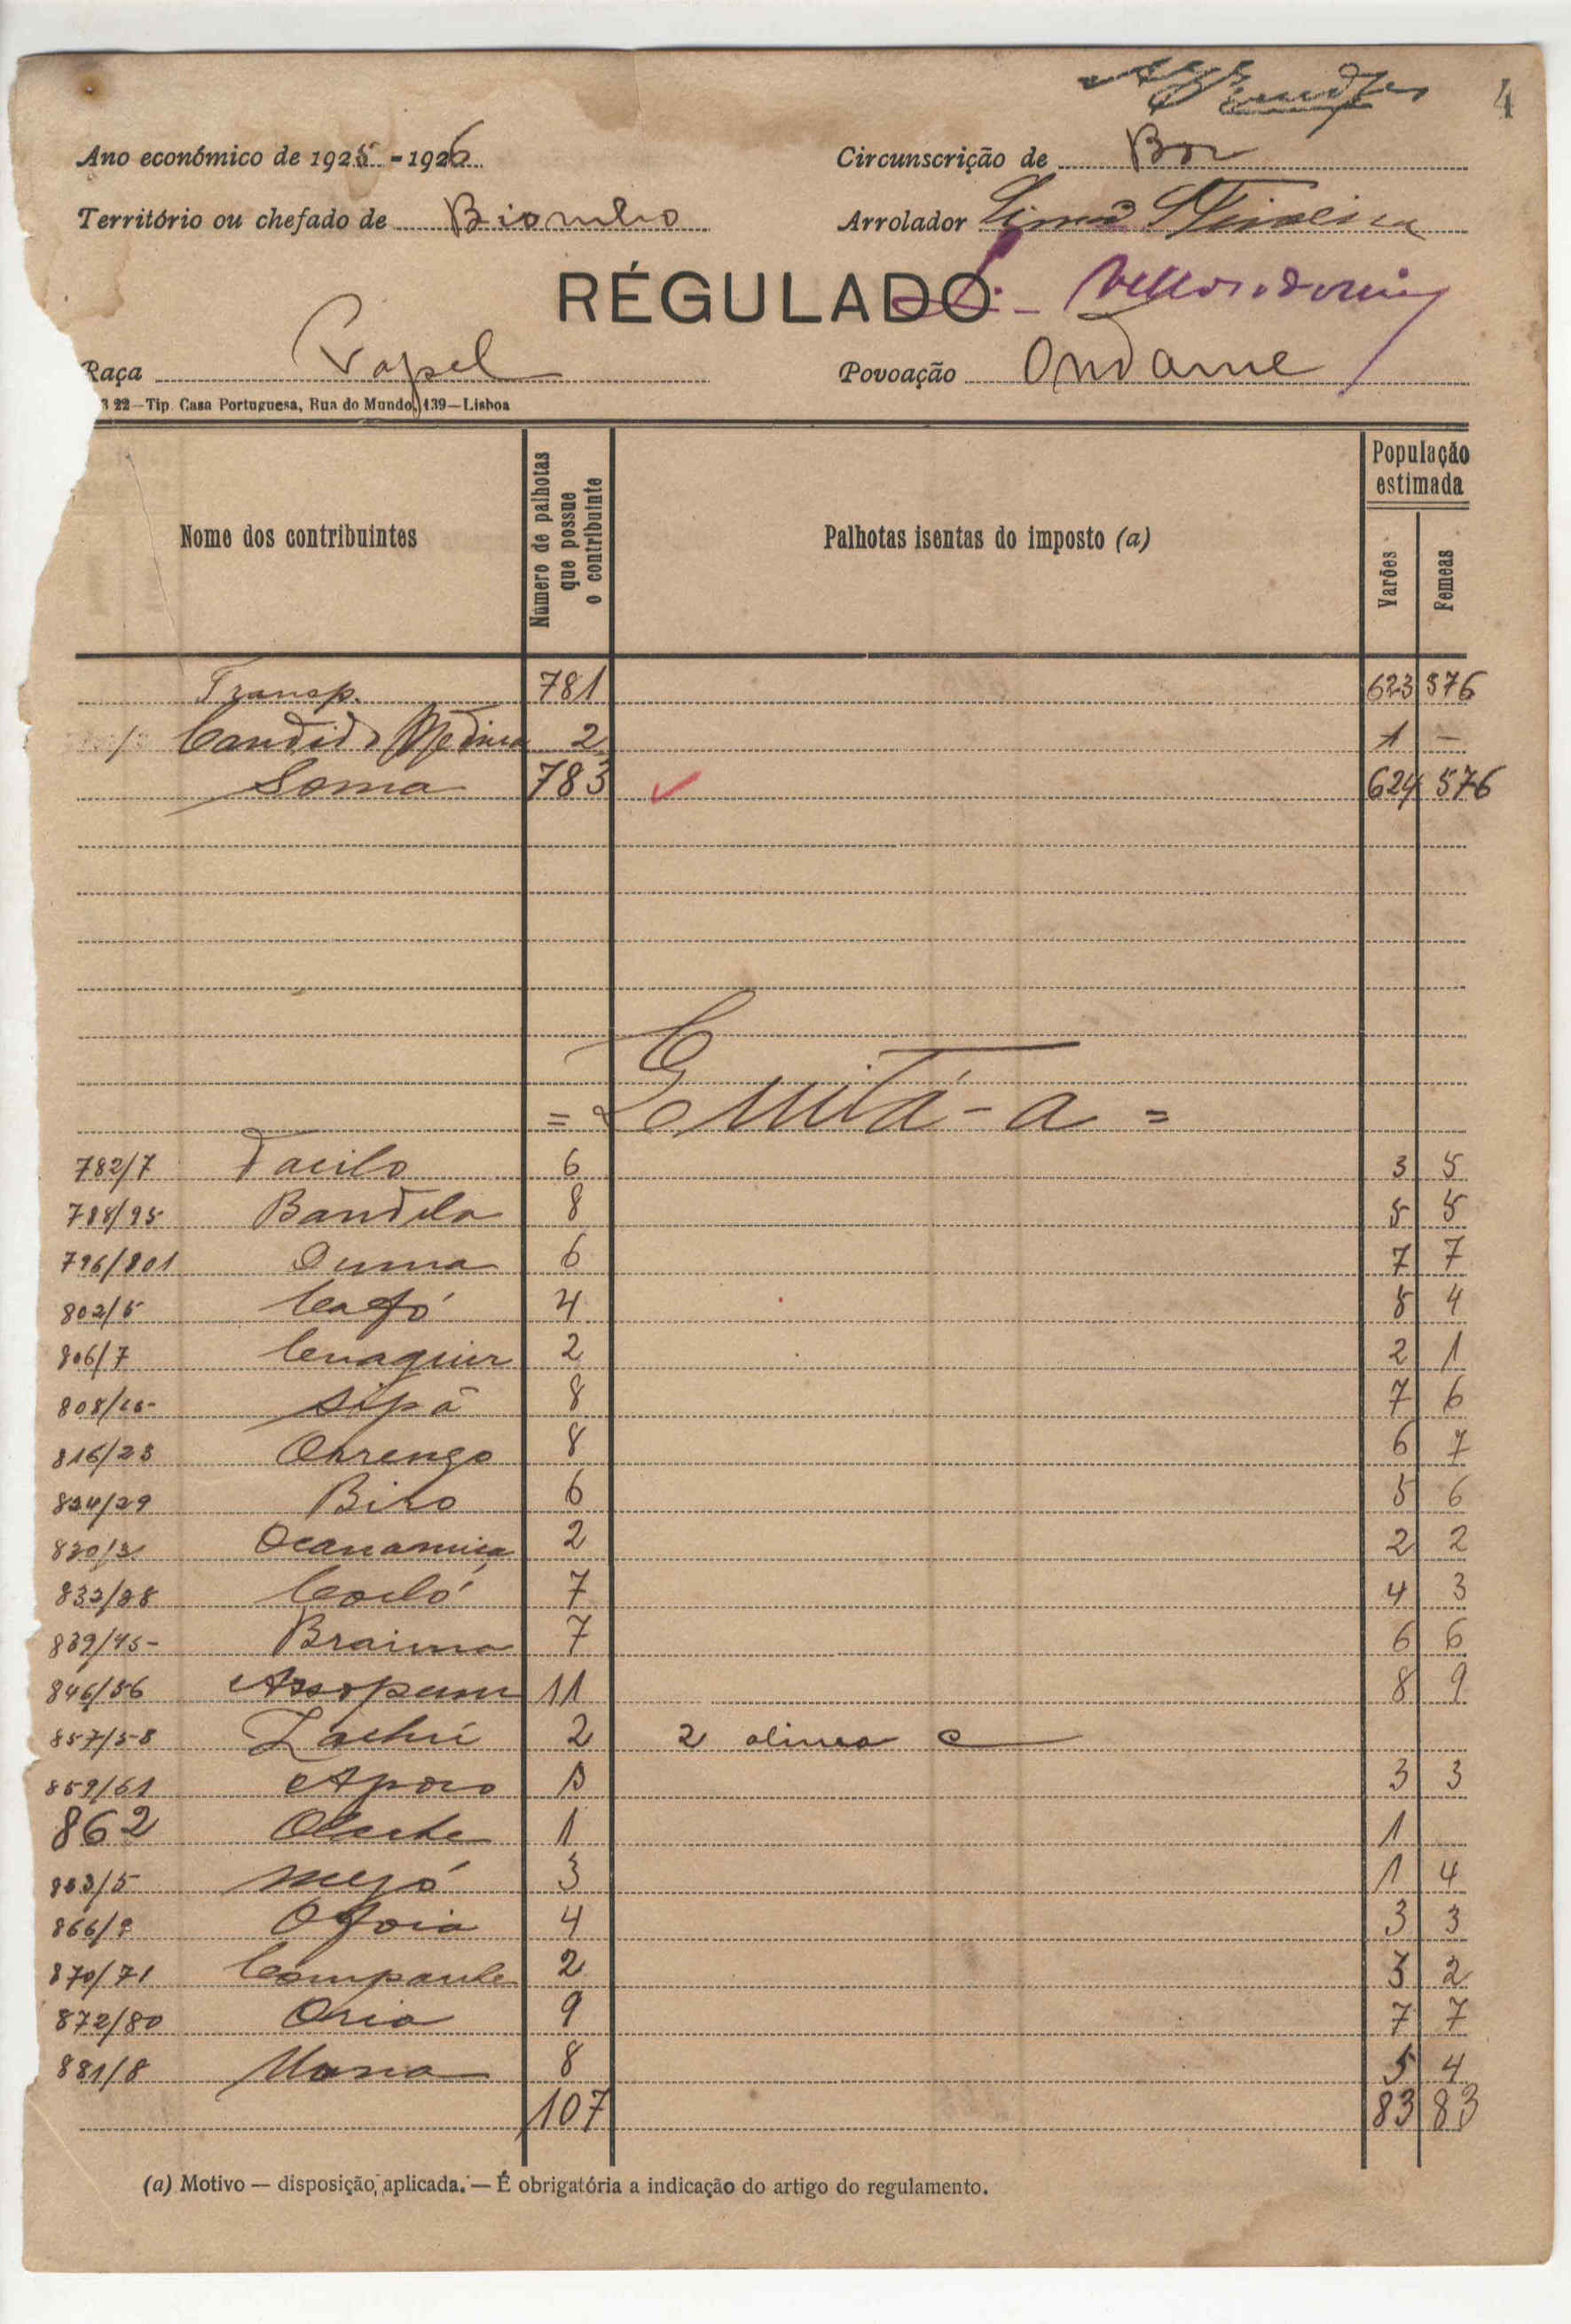 4
Ano económico de 1925 - 1926
Circunscrição de Bor
Território ou chefado de Biombo
Arrolador
RÉGULADO
Raça Papel
Povoação Ondame
22—Tip. Casa Portuguesa, Rua do Mundo, 139—Lisboa
Nome dos contribuintes
Número de palhotas que possue o contribuinte
Palhotas isentas do imposto (a)
População estimada
Varões
Femeas
Transp. 781 623 576
Candido Medina 2 1 —
Soma 783 624 576
782/7 Tacilo 6 3 5
788/95 Bandela 8 5 5
796/801 Duma 6 7 7
802/5 Cafó 4 4
806/7 2 2 1
808/15 Sipá 8 7 6
816/23 Ohrengo 8 6 7
824/29 Biro 6 5 6
2 2 2
832/38 Cocló 7 4 3
839/45 Braima 7 6 6
846/56 11 8 9
857/58 2 2 alinea c
859/61 3 3
862 1 1
863/5 3 1 4
866/9 Ofoia 4 3 3
870/71 2 3 2
872/80 Oria 9 7 7
881/8 8 5 4
107 83 83
(a) Motivo — disposição aplicada. — É obrigatória a indicação do artigo do regulamento.